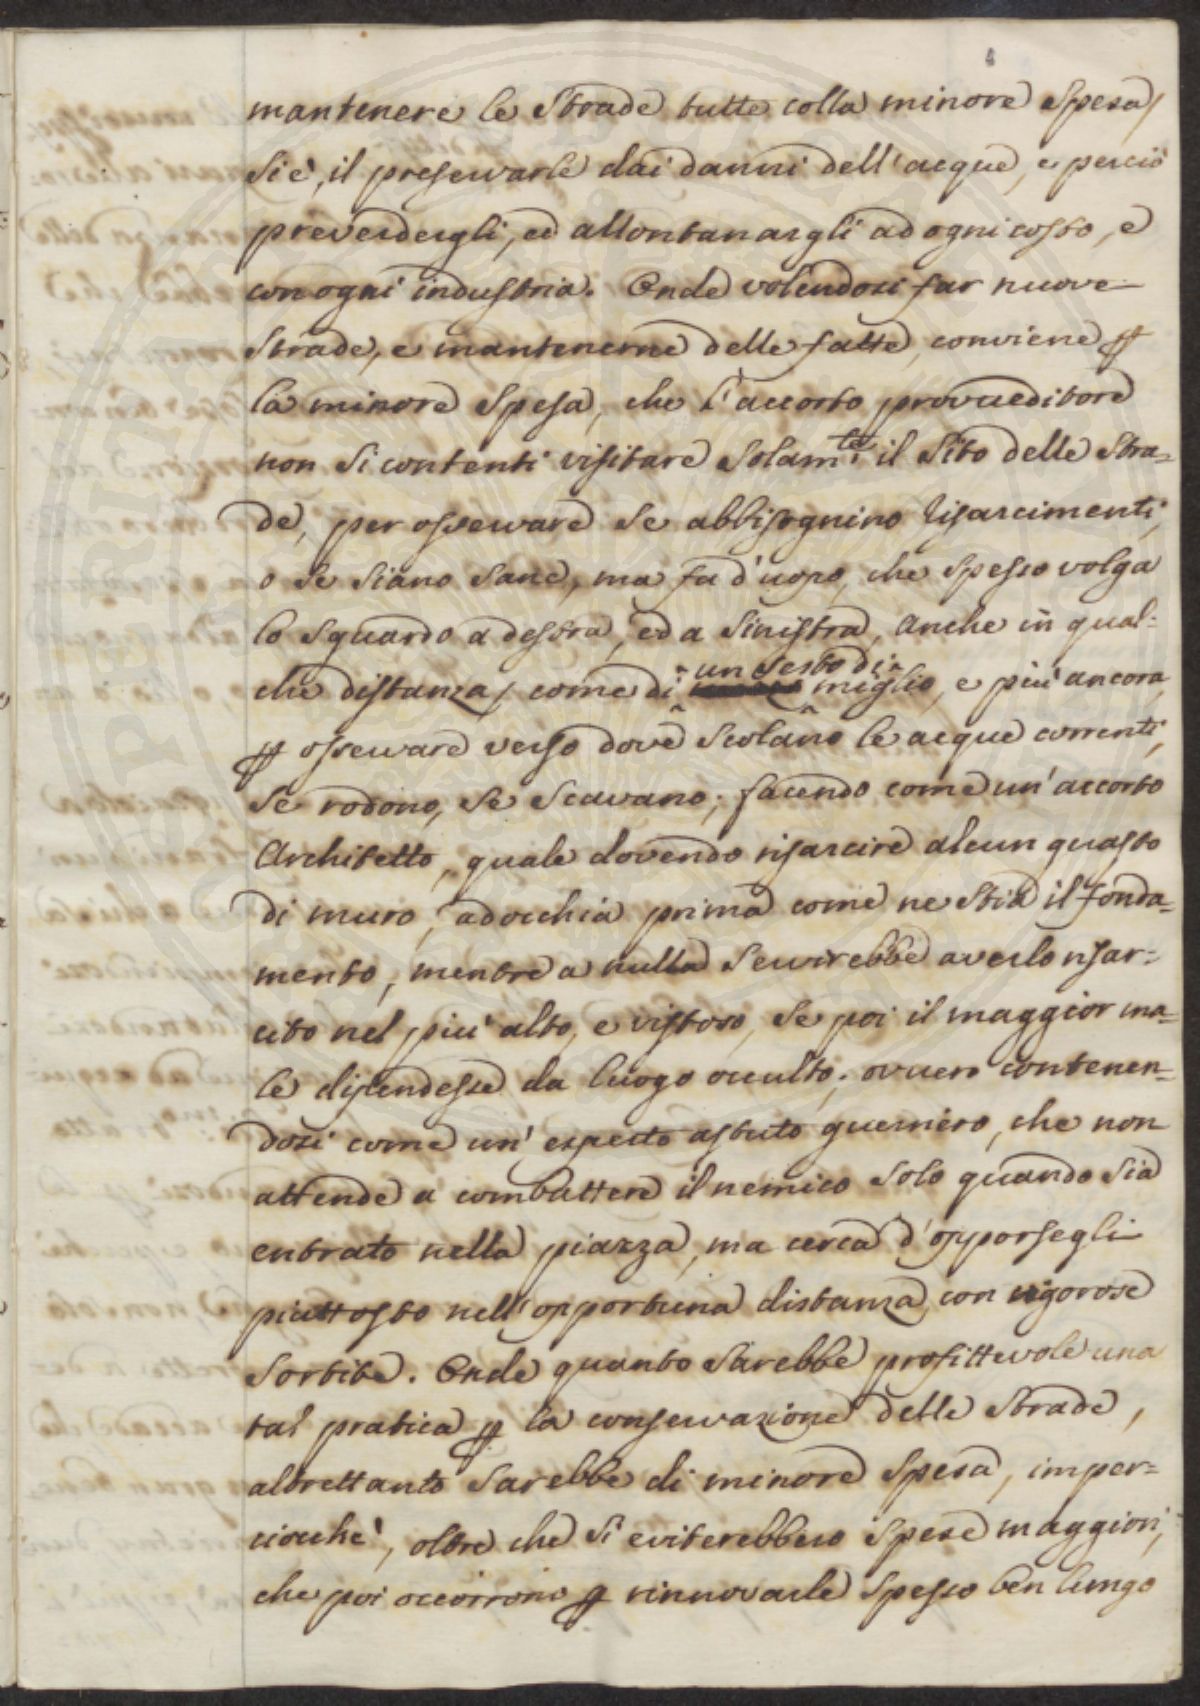 4
mantenere le Strade tutte colla minore spesa,
si è, il preservarle dai danni dell'acque, e perciò
prevederglj, ed allontanargli ad ogni costo, e
con ogni industria. Onde volendosi far nuove
Strade, e mantenerne delle fatte, conviene ꝑ
la minore Spesa, che l'accorto provveditore
non si contenti visitare Solam.te il Sito delle Stra=
de, per osservare se abbisognino risarcimenti,
o se siano Sane, ma fa d'uopo, che spesso volga
lo Sguardo a destra, ed a Sinistra, Anche in qual=
un sesto di
che distanza, come di miglio, e più ancora,
ꝑ osservare verso dove Scolano le acque correnti,
se rodono, se Scavano; facendo come un'accorto
Architetto, quale dovendo risarcire alcun guasto
di muro, adocchia prima come ne Stia il fonda=
mento, mentre a nulla Servirebbe averlo risar=
cito nel più alto, e vistoso, se poi il maggior ma=
le discendesse da luogo occulto; ovvero contenen=
dosi come un'esperto astuto guerriero, che non
attende a combattere il nemico Solo quando Sia
entrato nella piazza, ma cerca d'opporsegli
piuttosto nell'opportuna distanza con vigorose
Sortite. Onde quanto Sarebbe profittevole una
tal pratica ꝑ la conservazione delle Strade,
altrettanto Sarebbe di minore Spesa, imper=
ciocchè, oltre che si eviterebbero Spese maggiori,
che poi occorrono ꝑ rinnovarle Spesso ben lungo